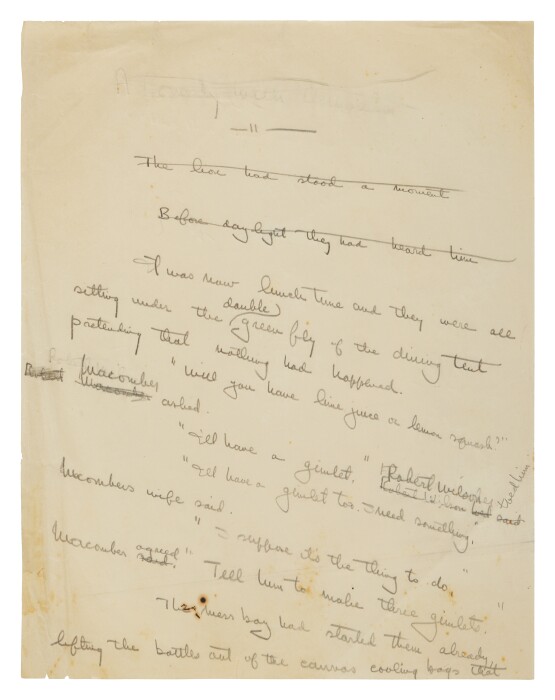 — 11 —
The lion had stood a moment
Before daylight they had heard him
It was now lunch time and they were all
sitting under the double green fly of the dining tent
pretending that nothing had happened.
"Will you have lime juice or lemon squash?"
Macomber asked.
"I'll have a gimlet." Robert Wilson told him.
"I'll have a gimlet too. I need something,"
Macombers wife said.
"I suppose it's the thing to do."
Macomber agreed said. "Tell him to make three gimlets."
The mess boy had started them already,
lifting the bottles out of the canvas cooling bags that